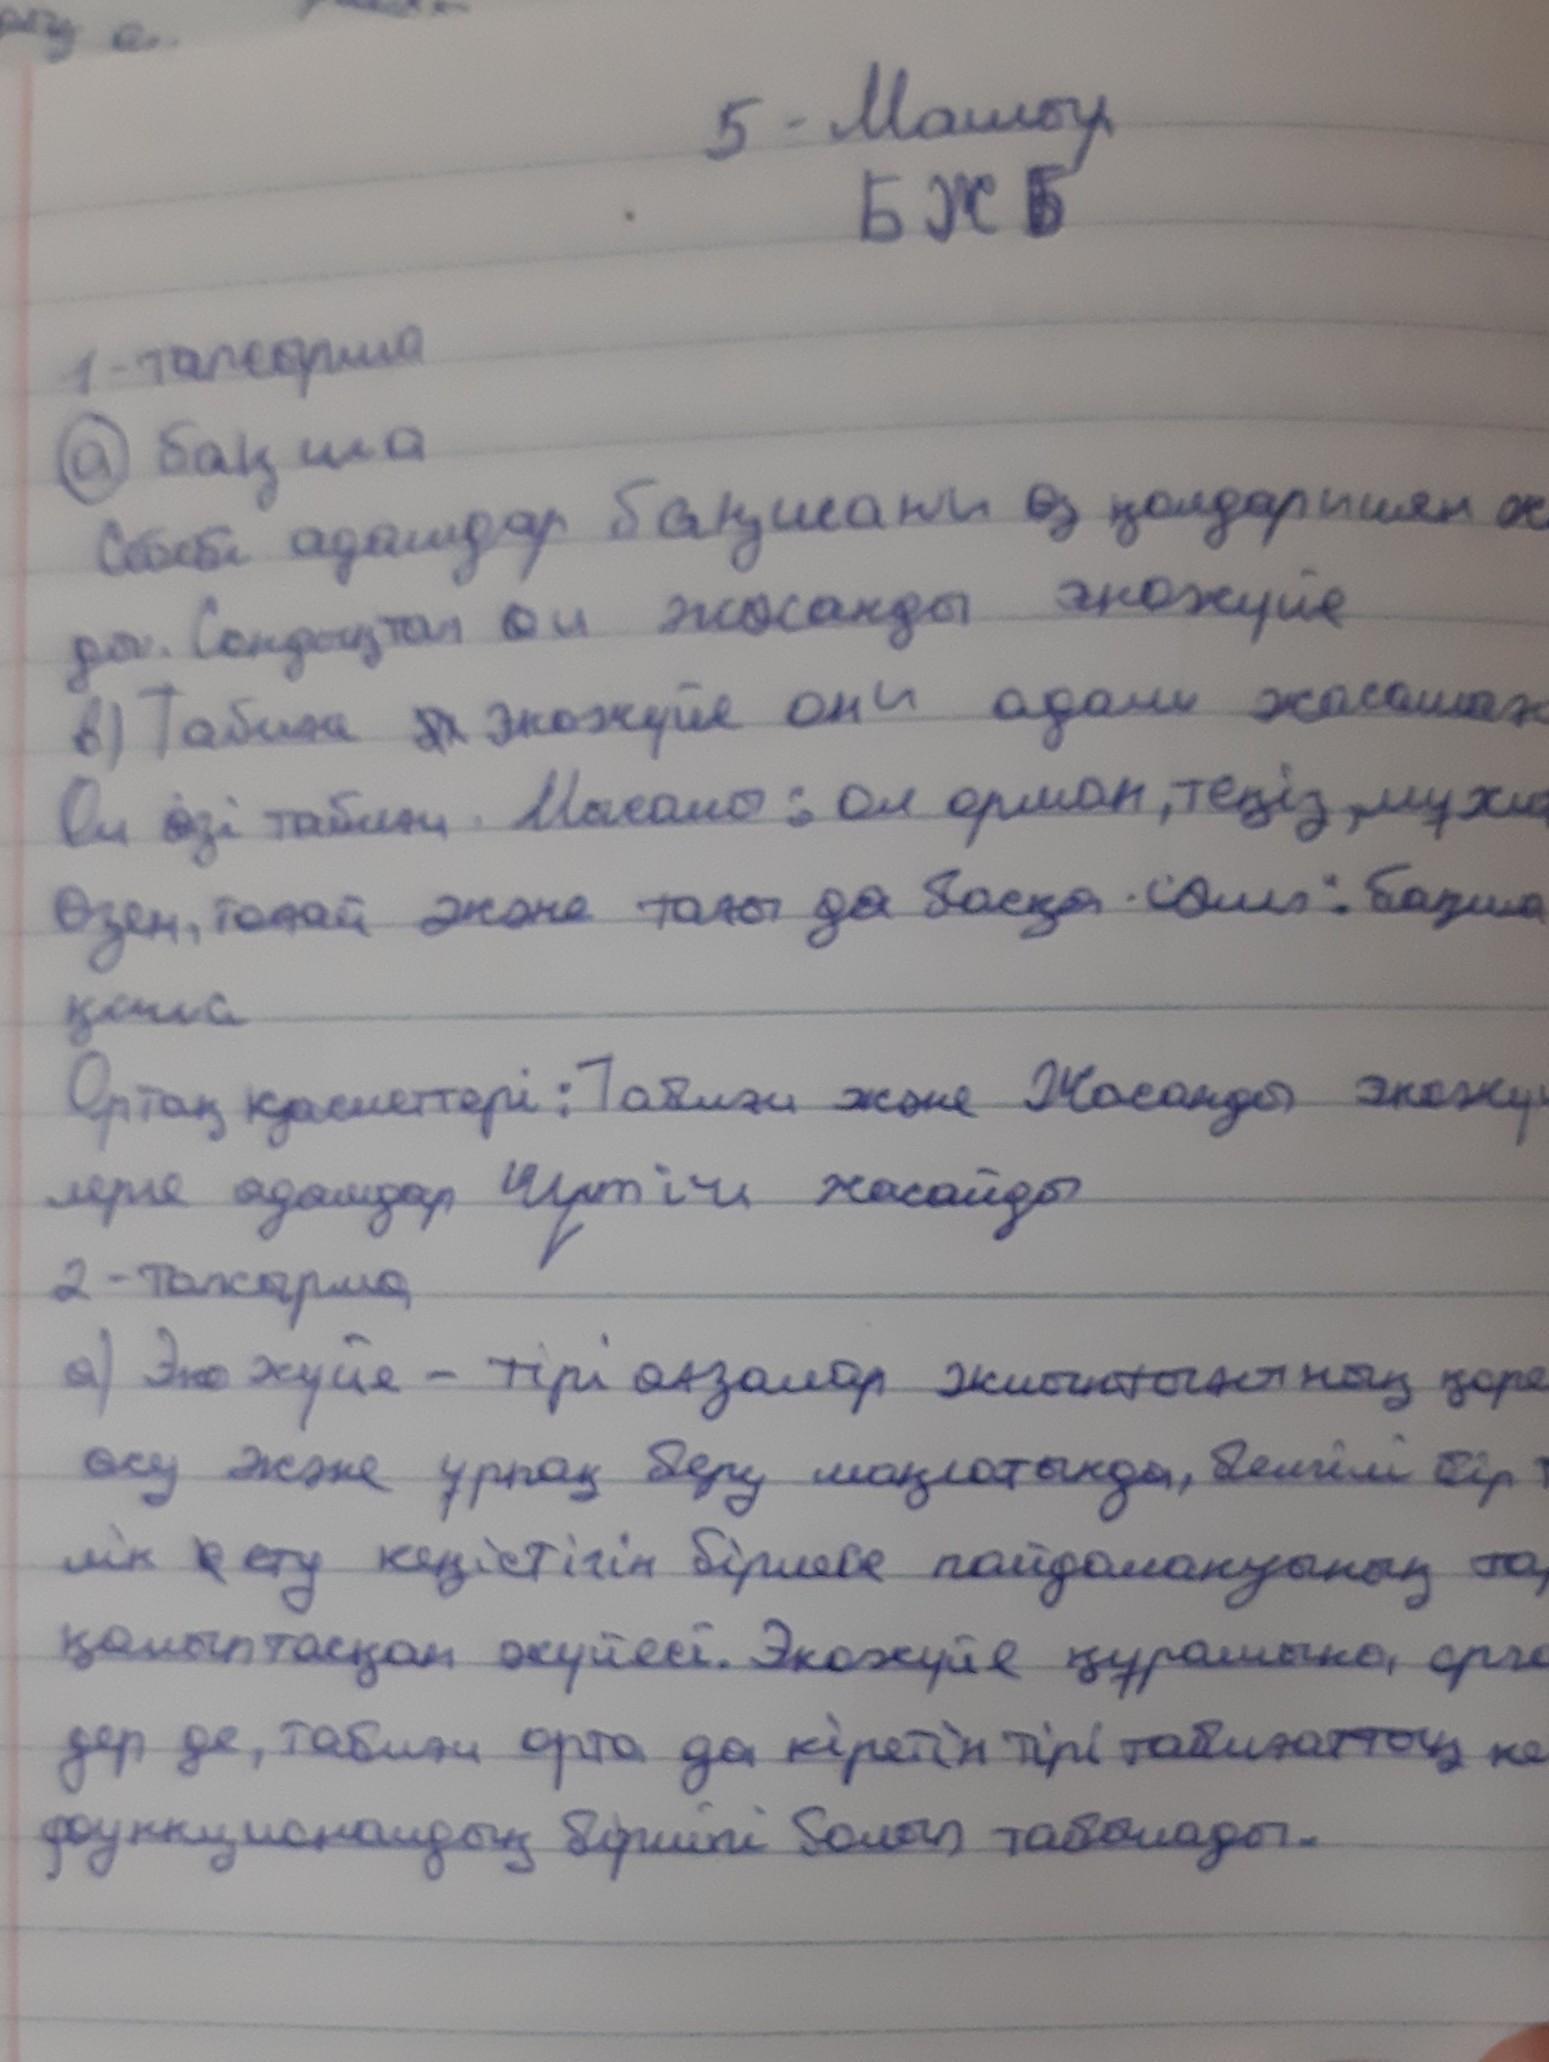 5 - Мамыр
БЖБ
1-тапсырма
а бақша
Себебі адамдар бақшани өз қолдаримен
ды. Сондықтан ол жасанды экожүйе
в) Табиғи экожүйе они адам
Ол өзі табиғи. Мысалы: ол орман, теңіз,
Өзен, тоғай және тағы да басқа. бақша
Ортақ қасиеттері: Табиғи және Жасанды
лерге адамдар жасайды
2-тапсырма
а) Экожүйе - тірі ағзалар жиынтығының
өсу және ұрпақ беру мақсатында, белгілі бір
лік ету кеңістігін бірлесе пайдалануының
қалыптасқан жүйесі. Экожүйе құрамына,
дер де, табиғи орта да кіретін тірі табиғаттың
функционалдық бірлігі болып табылады.